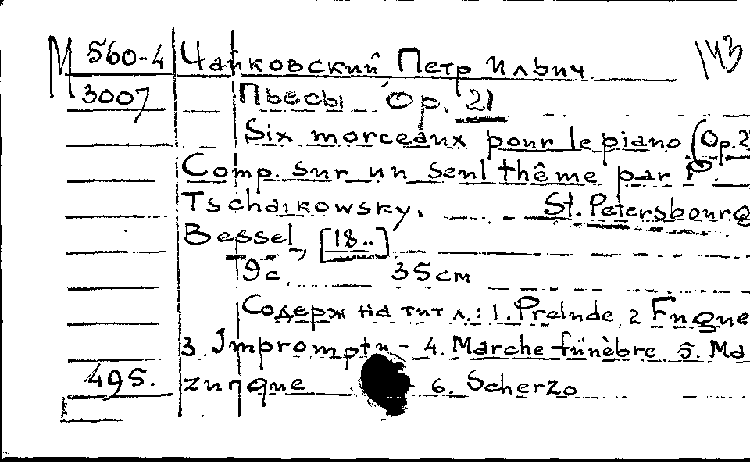 М 560-4 Чайковский Петр Ильич 143
3007 Пьесы Op. 21
Six morceaux pour le piano (Op.2
Comp. sur un seul thême par P.
Tschaikowsky. St. Petersbourg
Bessel, [18..]
9c 35см
Содерж на тит л.: 1. Prelude 2 Fugue
3 Impromptu - 4. Marche fünèbre 5. Ma
495. zurque 6. Scherzo